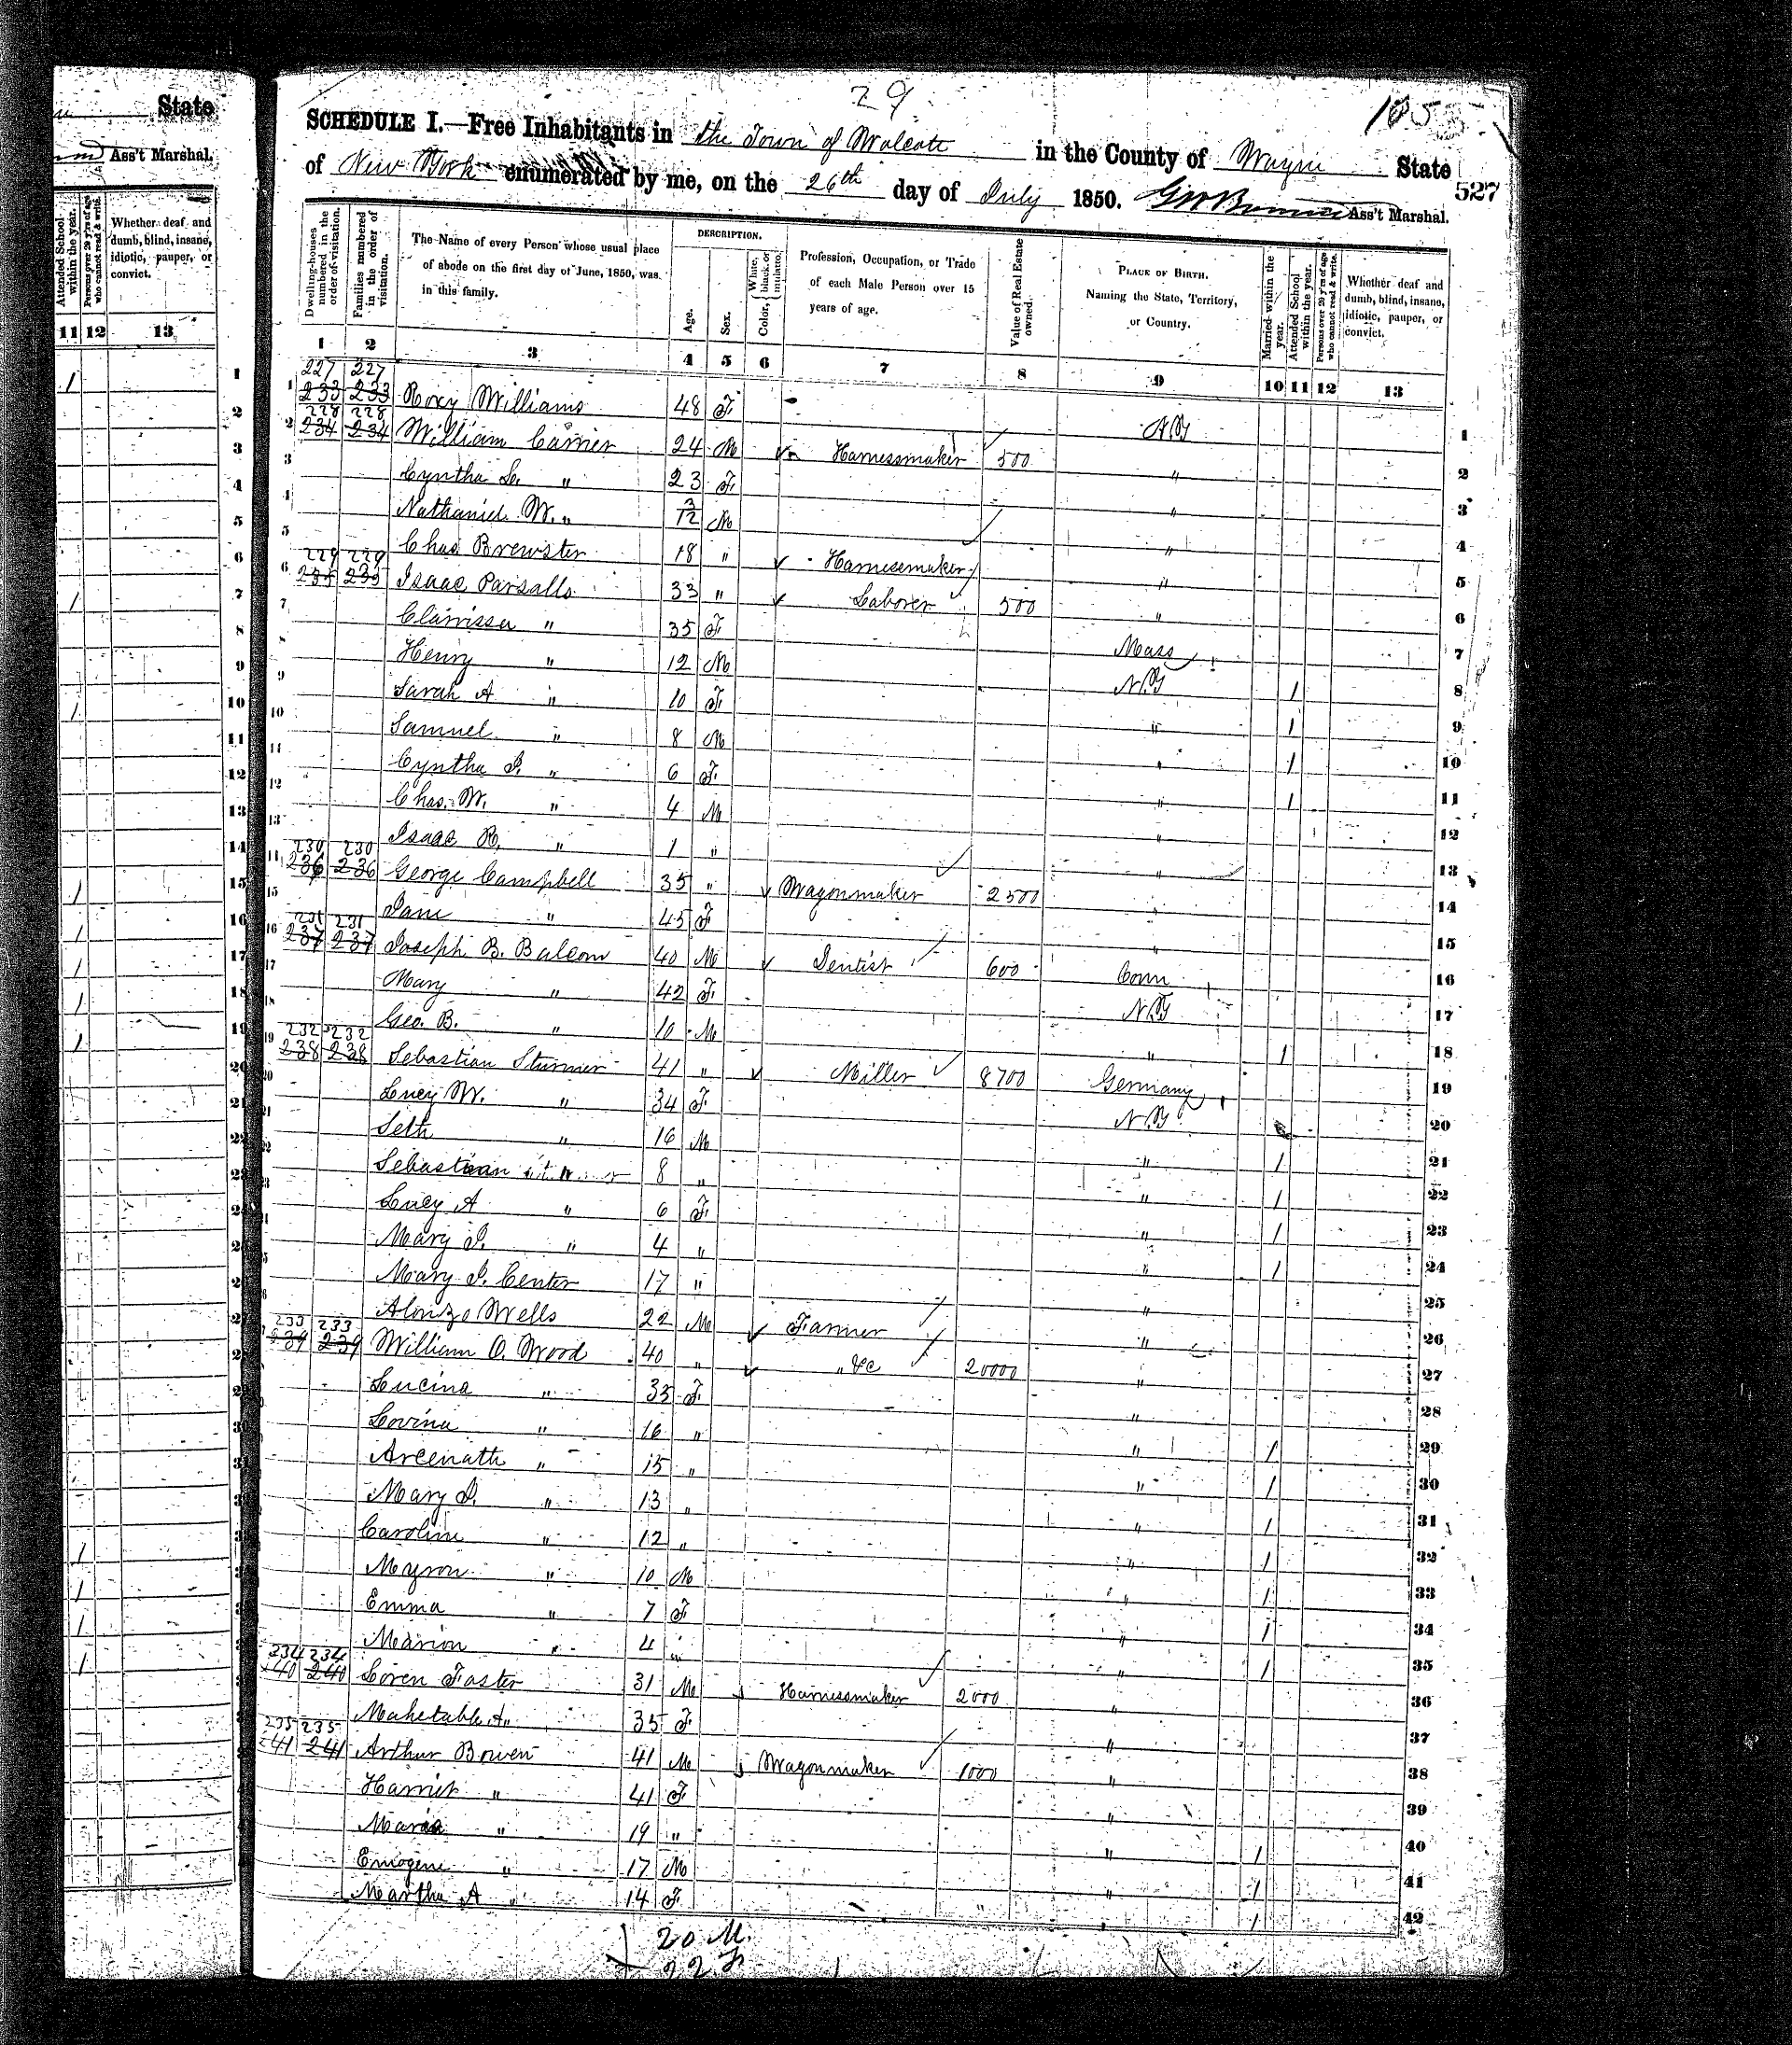 State
Ass't Marshal.
Attended School within the year.
Persons over 20 y'rs of age who cannot read & write.
Whether deaf and dumb, blind, insane, idiotic, pauper, or convict.
11 12 13
29
SCHEDULE I.—Free Inhabitants in the Town of Wolcott in the County of Wayne State
of New York enumerated by me, on the 26th day of July 1850. Ass't Marshal.
527
Dwelling-houses numbered in the order of visitation.
Families numbered in the order of visitation.
The Name of every Person whose usual place of abode on the first day of June, 1850, was in this family.
DESCRIPTION.
Age.
Sex.
Color, White, black, or mulatto.
Profession, Occupation, or Trade of each Male Person over 15 years of age.
Value of Real Estate owned.
PLACE OF BIRTH. Naming the State, Territory, or Country.
Married within the year.
Attended School within the year.
Persons over 20 y'rs of age who cannot read & write.
Whether deaf and dumb, blind, insane, idiotic, pauper, or convict.
1 2 3 4 5 6 7 8 9 10 11 12 13
227 227
1 233 233 Roxy Williams 48 F N.Y 1
228 228
2 234 234 William Carrier 24 M Harnessmaker 500 " 2
3 Cyntha L. " 23 F " 3
4 Nathaniel W. " 3/12 M " 4
5 Chas Brewster 18 " Harnessmaker " 5
229 229
6 235 235 Isaac Parsalls 33 " Laborer 500 " 6
7 Clarrissa " 35 F Mass 7
8 Henry " 12 M N.Y 1 8
9 Sarah A " 10 F " 1 9
10 Samuel " 8 M " 1 10
11 Cyntha J. " 6 F " 1 11
12 Chas. W. " 4 M " 12
13 Isaac R. " 1 " " 13
230 230
14 236 236 George Campbell 35 " Wagonmaker 2500 " 14
15 Jane " 45 F " 15
231 231
16 237 237 Joseph B. Balcom 40 M Dentist 600 Conn 16
17 Mary " 42 F N.Y 17
18 Geo. B. " 10 M " 1 18
232 232
19 238 238 Sebastian Sturmer 41 " Miller 8700 Germany 19
20 Lucy W. " 34 F N.Y 20
21 Seth " 16 M " 1 21
22 Sebastian 8 " " 1 22
23 Lucy A " 6 F " 1 23
24 Mary J. " 4 " " 1 24
25 Mary J. Center 17 " " 25
26 Alonzo Wells 22 M Farmer " 26
233 233
239 239 William O. Wood 40 " " &c 20000 " 27
Lucina " 35 F " 28
Lovina " 16 " " 1 29
Arcenath " 15 " " 1 30
Mary J. " 13 " " 1 31
Caroline " 12 " " 1 32
Myron " 10 M " 1 33
Emma " 7 F " 1 34
Marion " 4 " " 1 35
234 234
240 240 Loren Faster 31 M Harnessmaker 2000 " 36
Mahetable A " 35 F " 37
235 235
241 241 Arthur Bowen 41 M Wagonmaker 1000 " 38
Harriet " 41 F " 39
Maria " 19 " " 1 40
Emogene " 17 M " 1 41
Martha A " 14 F " 1 42
20 M.
22 F